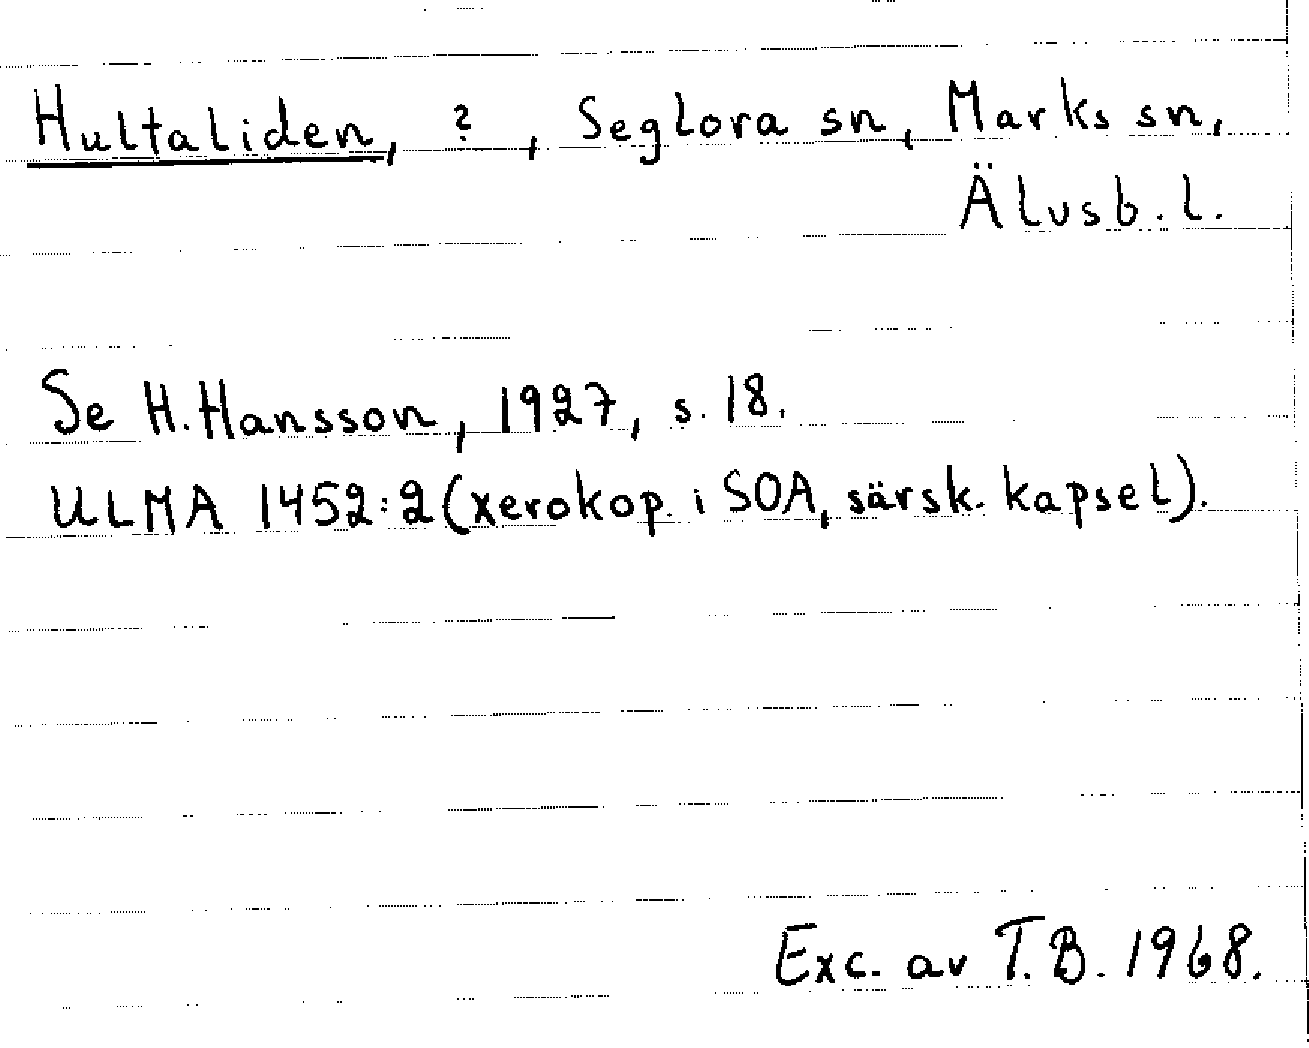 Hultaliden, ?, Seglora sn, Marks sn,
Älvsb. l.
Se H. Hansson, 1927, s. 18.
ULMA 1452:2 (xerokop. i SOA, särsk. kapsel).
Exc. av T.B. 1968.